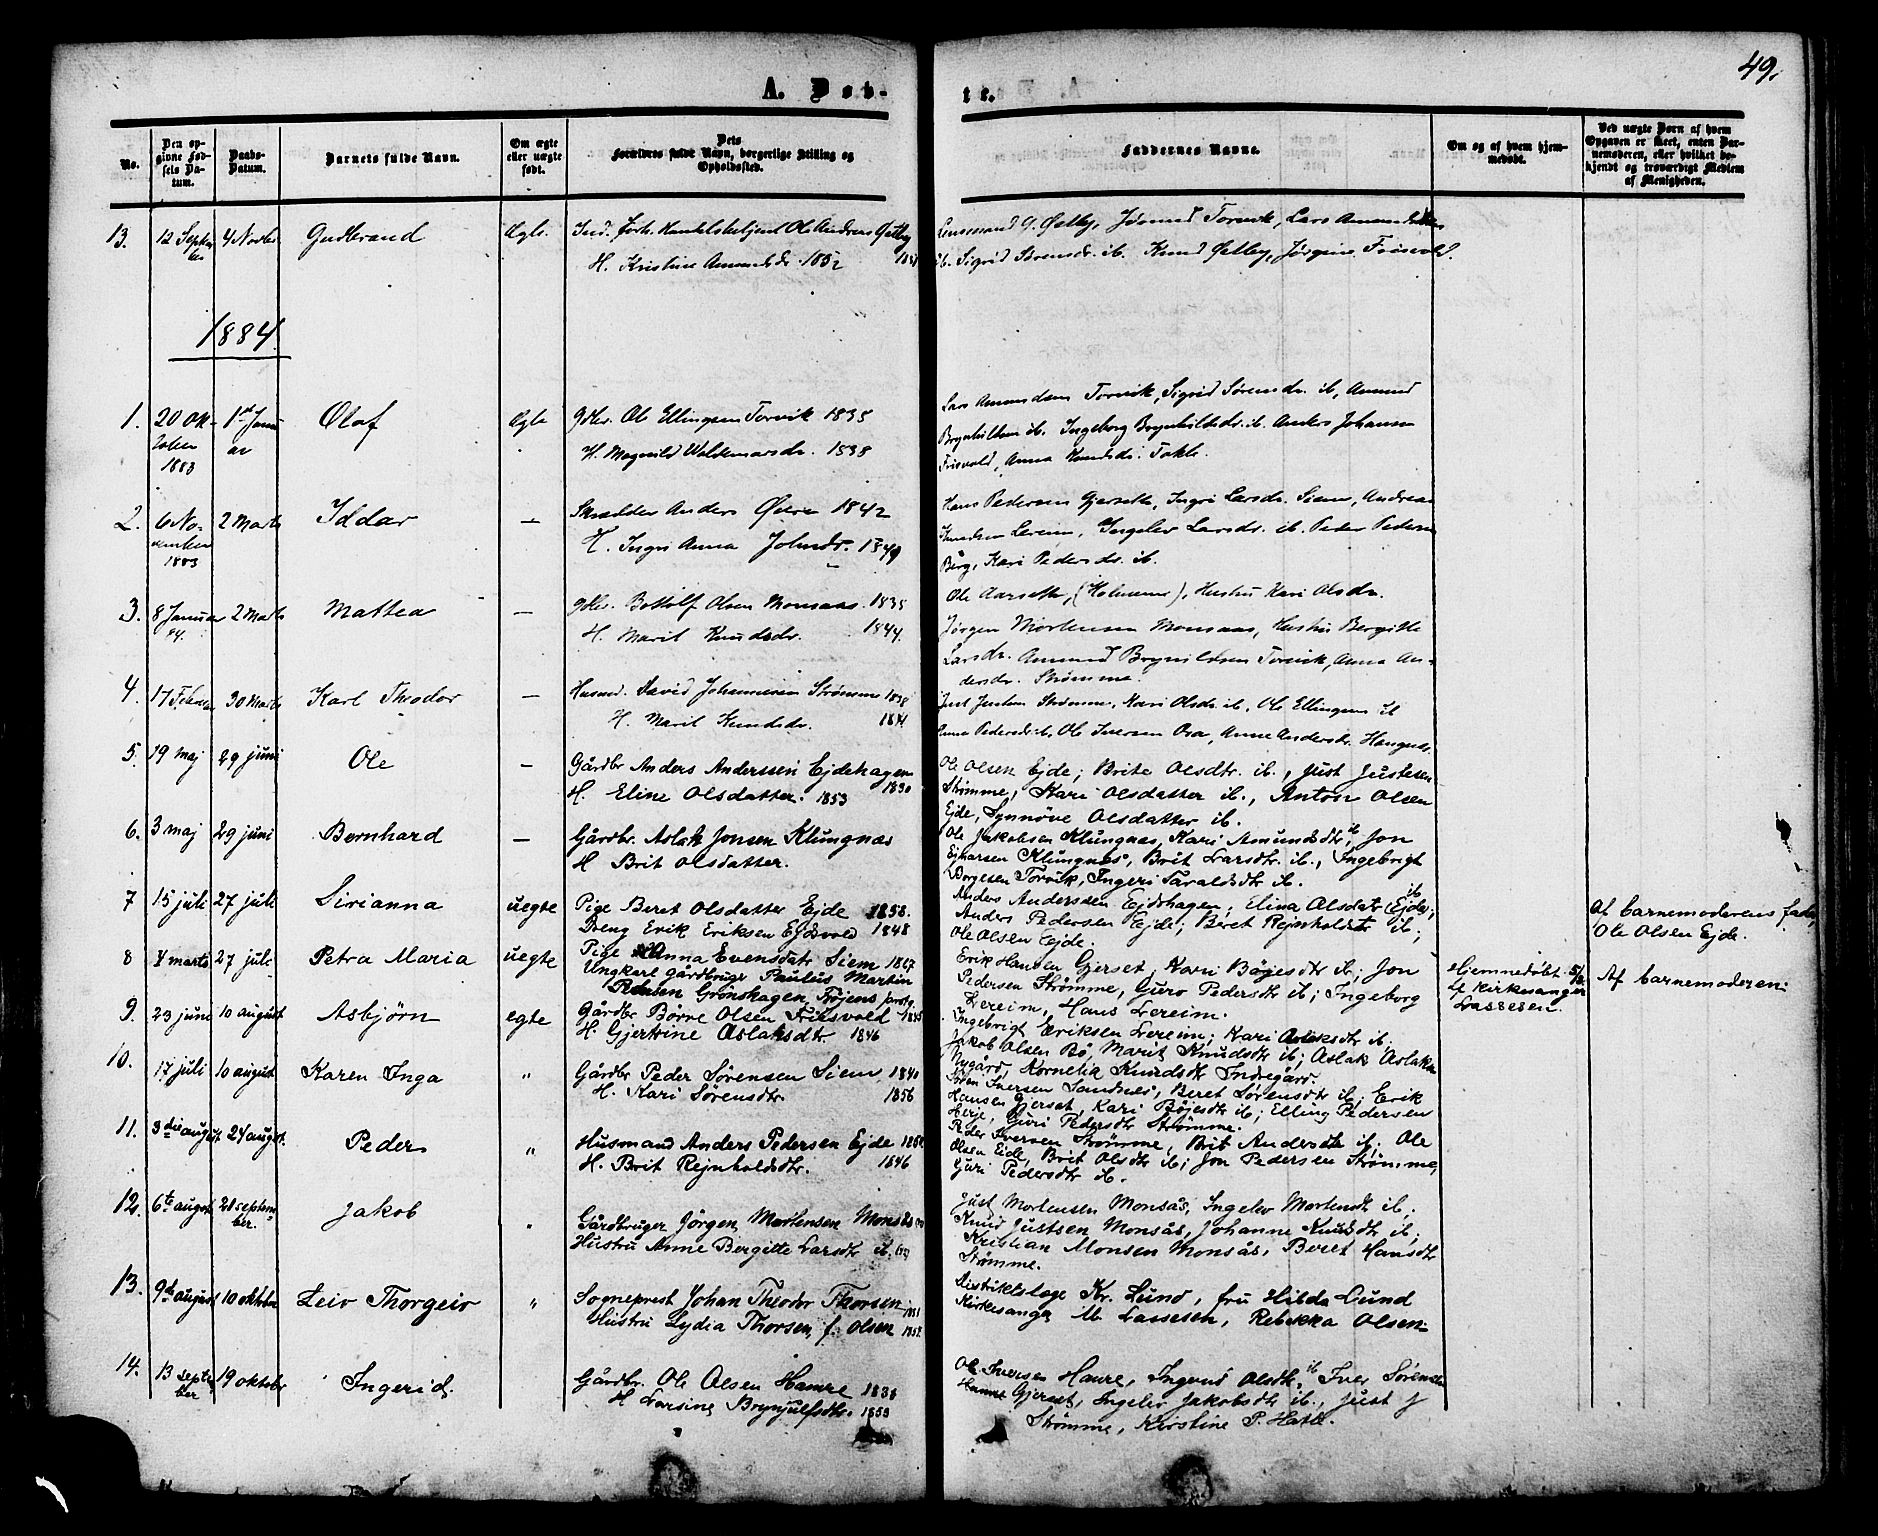 49.
A. Døb- te.
No.
Den opgivne Fødsels Datum.
Daabs-Datum.
Barnets fulde Navn.
Om ægte eller uægte født.
Dets Forældres fulde Navn, borgerlige Stilling og Opholdssted.
Faddernes Navne.
Om og af hvem hjemmedøbt.
Ved uægte Børn af hvem Opgaven er skeet, enten Barnemoderen, eller hvilket bekjendt og troværdigt Medlem af Menigheden.
13. 12 Septem ber 4 Novbr Gudbrand Ægte. Ind. forh. Handelsbetjent Ole Andreas Øetby
H. Kristine Amundsdr. 1852
Lensmand G. Øetby, Torvik, Lars Amundsen
ib. Sigrid Sørensdr. ib. Knud Øetby, Jørgine Frisvold.
1884
1. 20 Ok- tober 1883 1ste Janu ar Olaf Ægte Gdbr. Ole Ellingsen Torvik 1835
H. Magnild Waldemarsdr. 1838
Lars Amundsen Torvik, Sigrid Sørensdr. ib, Amund
Brynhildsen ib. Ingeborg Brynhildsdr. ib. Anders Johansen
Frisvold, Anna Knudsdr. Takle.
2. 6 No- vember 1883 2 Marts Iddar — Skrædder Anders Øvere 1842
H. Ingri Anna Johnsdr. 1849
Hans Pedersen Gjersette, Ingri Larsdr. Siem, Andreas
Knudsen Lereim, Ingelev Larsdr. ib. Peder Pedersen
Berg, Kari Pedersdr. ib.
3. 8 Januar 84. 2 Marts Mattea — Gdbr. Bottolf Olsen Monsaas. 1835
H. Marit Knudsdr. 1844.
Ole Aarsette, (Holmene), Hustru Kari Olsdr.
Jørgen Mortensen Monsaas, Hustru Bergitte
Larsdr. Amund Brynildsen Torvik, Anna An-
dersdr. Strømme.
4. 17 Februar 30 Marts Karl Theodor — Husmd. David Johannesen Strømme 1838
H. Marit Knudsdr. 1841
Just Justsen Strømme, Kari Olsdr ib., Ole Ellingsen ib
Anna Pedersdr. ib, Ole Iversen Osa, Anne Andersdr.
5. 19 maj 29 juni Ole — Gårdbr Anders Anderssen Ejdehagen 1830
H. Eline Olsdatter. 1853
Ole Olsen Ejde; Brite Olsdtr. ib., Just Justesen
Strømme, Kari Olsdatter ib., Anton Olsen
Ejde, Synnøve Olsdatter ib.
6. 3 maj 29 juni Bernhard — Gårdbr. Aslak Jonsen Klungnæs
H Brit Olsdatter.
Ole Jakobsen Klungnæs, Kari Amundsdtr ib, Jon
Ejnarsen Klungnæs, Brit Larsdtr. ib., Ingebrigt
Børgesen Torvik, Ingeri Taraldsdtr ib.
7 15 juli 27 juli Sirianna uegte Pige Beret Olsdatter Ejde 1858.
Dreng Erik Eriksen Ejdsvold 1848
Anders Anderssen Ejdehagen, Elina Olsdatr (Ejde) ib;
Anders Pedersen Ejde; Beret Rejnholdsdtr ib;
Ole Olsen Ejde.
Af barnemoderens fader,
Ole Olsen Ejde.
8 4 marts 27 juli Petra Maria uegte Pige Anna Evensdatr Siem 1867
Ungkarl gårdbruger Paulus Martin
Grönshagen, Frøjens prstg.
Erik Hansen Gjerset, Kari Bøjesdtr ib; Jon
Pedersen Strømme, Guro Pedersdtr ib; Ingeborg
Lereim, Hans Lereim.
Hjemmedøbt 5/3
af kirkesanger
Lassesen.
Af barnemoderen.
9. 23 juni 10 august Asbjörn egte Gårdbr Børre Olsen Friksvold 1845
H. Gjertrine Aslaksdtr 1846
Ingebrigt Eriksen Lereim; Kari Aslaksdtr ib.
Jakob Olsen Bö, Marit Knudsdtr ib; Aslak Aslaksn
Nygård, Kornelia Knudsdtr Indregård.
10. 17 juli 10 august Karen Inga " Gårdbr Peder Sørensen Siem 1840
H. Kari Sörensdtr. 1856
Sören Iversen Sandnes, Beret Sørensdtr ib; Erik
Hansen Gjerset, Kari Böjesdtr ib; Elling Pedersen
Herje, Guri Pedersdtr Strömme.
11. 3die august 24 august. Peder " Husmand Anders Pedersen Ejde
H. Brit Rejnholdsdtr. 1846
Peder Iversen Strømme, Brit Andersdtr ib. Ole
Olsen Ejde, Brit Olsdtr ib; Jon Pedersen Strömme,
Guri Pedersdtr ib.
12. 6te august 21 september. Jakob " Gårdbruger Jørgen Mortensen Monsås
Hustru Anne Bergitte Larsdtr ib.
Just Mortensen Monsås, Ingelev Mortensdt ib;
Knud Justsen Monsås, Johanne Knudsdtr ib;
Kristian Monsen Monsås, Beret Hansdtr
Strømme.
13. 9de august 10 oktober Leiv Thorgeir " Sogneprest Johan Theodor Thorsen 1851
Hustru Lydia Thorsen f. Olsen
Distriktslæge Kr. Lund, fru Hilda Lund
Kirkesanger M. Lassesen, Rebekka Olsen
14. 13 september 19 oktober Ingerid. Gårdbr. Ole Olsen Hamre 1838
H Larsine Brynjulfsdtr. 1853
Ole Iversen Hamre, Ingrid Olsdtr ib, Iver Sörensen
Gjerset, Ingelev Jakobsdtr ib., Just J
Strömme, Kirstine P. Hatle.